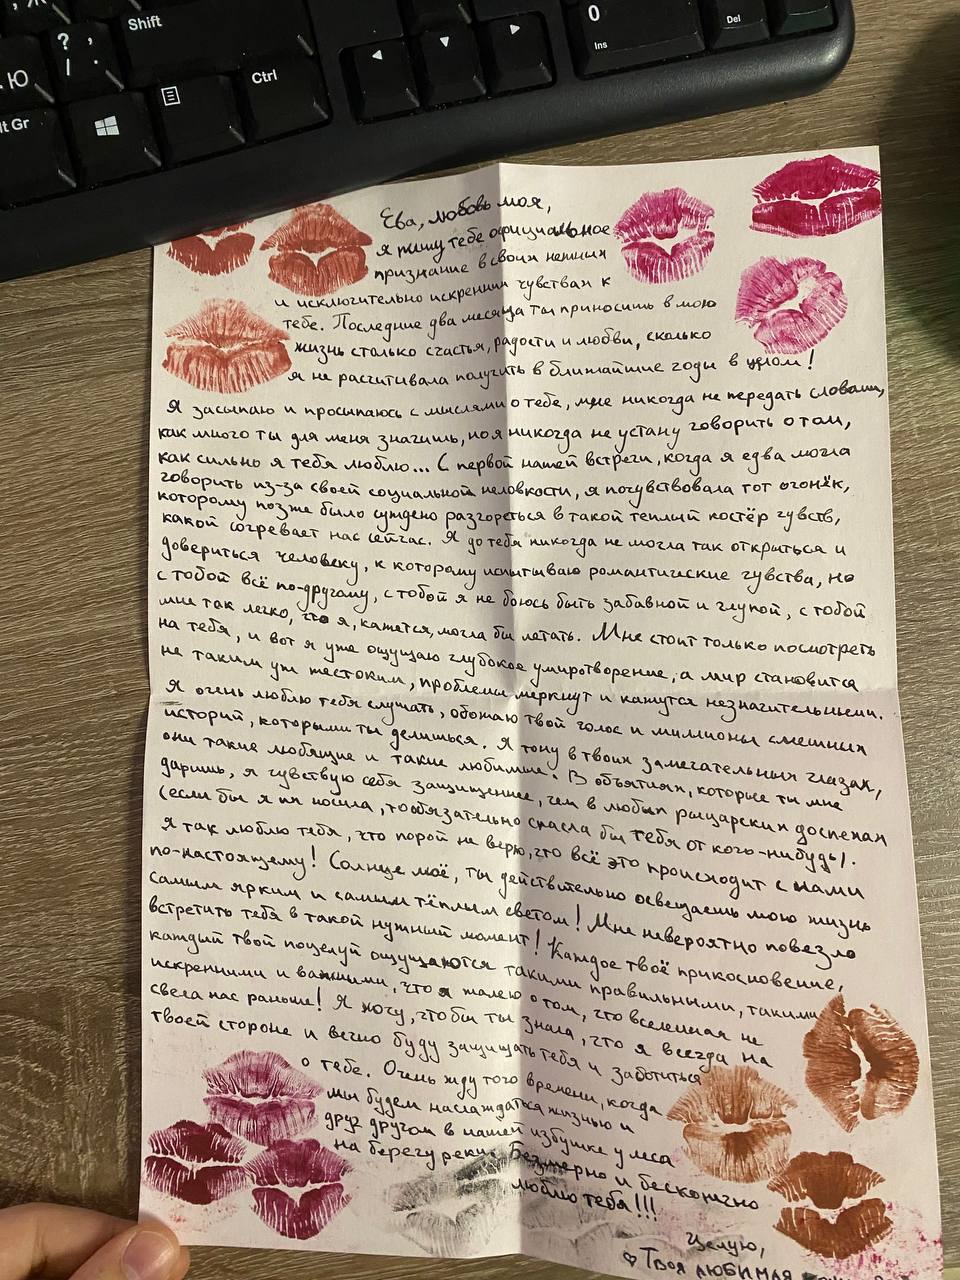 Shift
? ,
/ .
. Ю
lt Gr
Ctrl
0
Ins
Del
Ева, любовь моя,
я пишу тебе официальное
признание в своих нежных
и исключительно искренних чувствах к
тебе. Последние два месяца ты приносишь в мою
жизнь столько счастья, радости и любви, сколько
я не расчитывала получить в ближайшие годы в целом!
Я засыпаю и просыпаюсь с мыслями о тебе, мне никогда не передать словами,
как много ты для меня значишь, но я никогда не устану говорить о том,
как сильно я тебя люблю... С первой нашей встречи, когда я едва могла
говорить из-за своей социальной неловкости, я почувствовала тот огонёк,
которому позже было суждено разгореться в такой теплый костёр чувств,
какой согревает нас сейчас. Я до тебя никогда не могла так открыться и
довериться человеку, к которому испытываю романтические чувства, но
с тобой всё по-другому, с тобой я не боюсь быть забавной и глупой, с тобой
мне так легко, что я, кажется, могла бы летать. Мне стоит только посмотреть
на тебя, и вот я уже ощущаю глубокое умиротворение, а мир становится
не таким уж жестоким, проблемы меркнут и кажутся незначительными.
Я очень люблю тебя слушать, обожаю твой голос и миллионы смешных
историй, которыми ты делишься. Я тону в твоих замечательных глазах,
они такие любящие и такие любимые. В объятиях, которые ты мне
даришь, я чувствую себя защищеннее, чем в любых рыцарских доспехах
(если бы я их носила, то обязательно спасла бы тебя от кого-нибудь).
Я так люблю тебя, что порой не верю, что всё это происходит с нами
по-настоящему! Солнце моё, ты действительно освещаешь мою жизнь
самым ярким и самым тёплым светом! Мне невероятно повезло
встретить тебя в такой нужный момент! Каждое твоё прикосновение,
каждый твой поцелуй ощущаются такими правильными, такими
искренними и важными, что я жалею о том, что вселенная не
свела нас раньше! Я хочу, чтобы ты знала, что я всегда на
твоей стороне и вечно буду защищать тебя и заботиться
о тебе. Очень жду того времени, когда
мы будем наслаждаться жизнью и
друг другом в нашей избушке у леса
на берегу реки. Безмерно и бесконечно
люблю тебя!!!
Целую,
♡ Твоя любимая